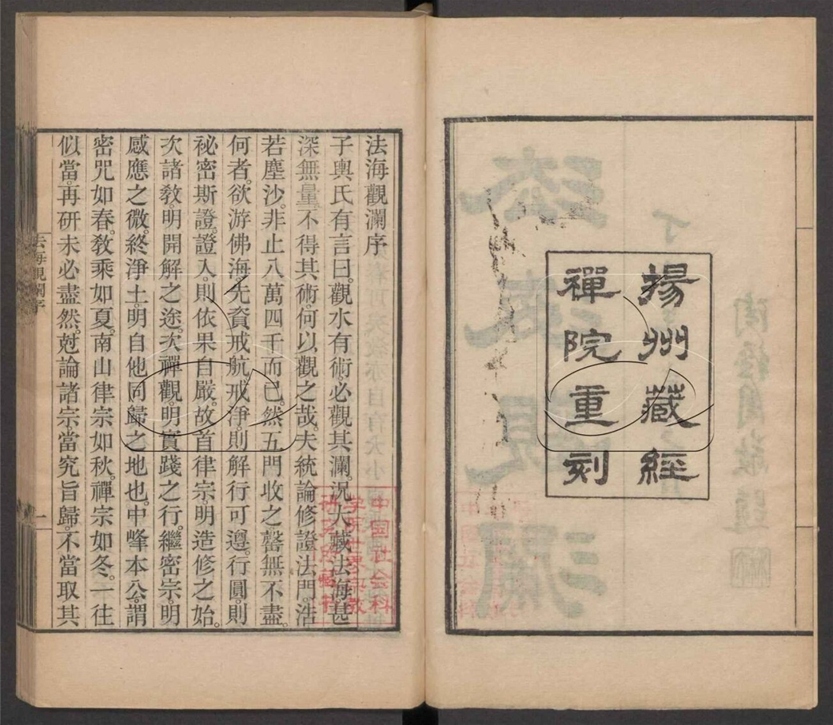 揚州藏經
禪院重刻
法海觀瀾序
子輿氏有言曰。觀水有術必觀其瀾。況大藏法海甚
深無量。不得其術何以觀之哉。夫統論修證法門。浩
若塵沙。非止八萬四千而已。然五門收之罄無不盡。
何者。欲游佛海先資戒航。戒淨則解行可遵。行圓。則
祕密斯證。證入。則依果自嚴。故首律宗。明造修之始。
次諸教。明開解之途。次禪觀。明實踐之行。繼密宗。明
感應之微。終淨土。明自他同歸之地也。中峰本公。謂
密咒如春。教乘如夏。南山律宗如秋。禪宗如冬。一往
似當。再研未必盡然。尅論諸宗。當究旨歸。不當取其
法海觀瀾序
一